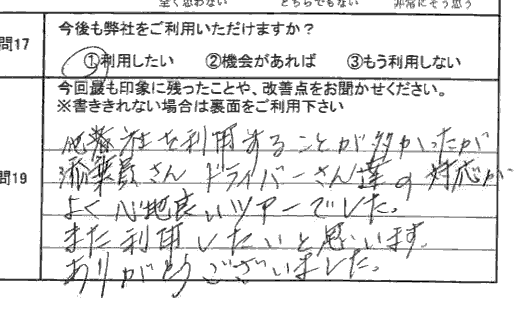 全く思わない どちらでもない 非常にそう思う
問17
今後も弊社をご利用いただけますか？
①利用したい ②機会があれば ③もう利用しない
問19
今回最も印象に残ったことや、改善点をお聞かせください。
※書ききれない場合は裏面をご利用下さい
他社を利用することが多かったが
添乗員さん ドライバーさん達の対応が
よく心地良いツアーでした。
また利用したいと思います。
ありがとうございました。